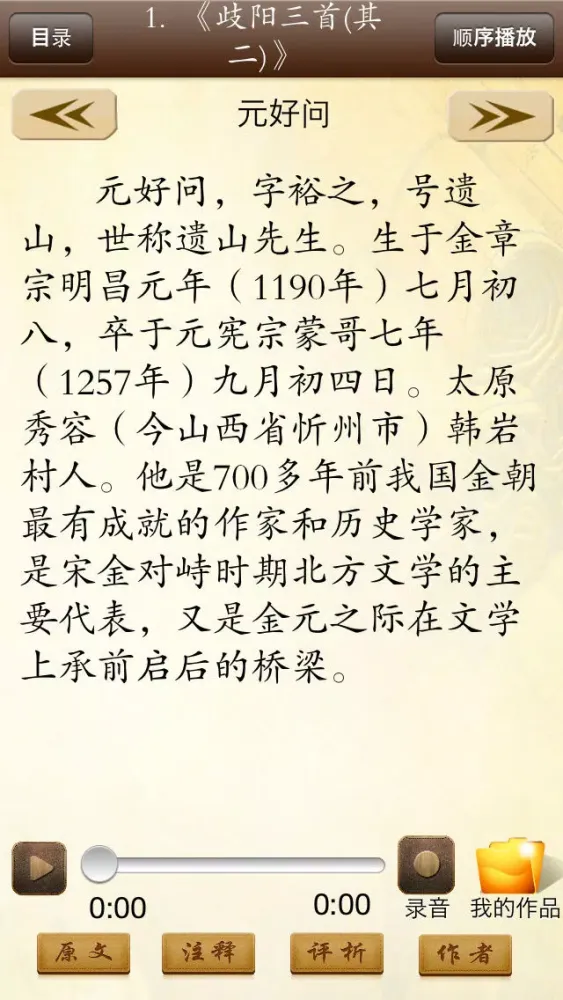 目录
1. 《歧阳三首(其
二)》
顺序播放
元好问
元好问，字裕之，号遗
山，世称遗山先生。生于金章
宗明昌元年（1190年）七月初
八，卒于元宪宗蒙哥七年
（1257年）九月初四日。太原
秀容（今山西省忻州市）韩岩
村人。他是700多年前我国金朝
最有成就的作家和历史学家，
是宋金对峙时期北方文学的主
要代表，又是金元之际在文学
上承前启后的桥梁。
0:00
0:00
录音
我的作品
原文
注释
评析
作者